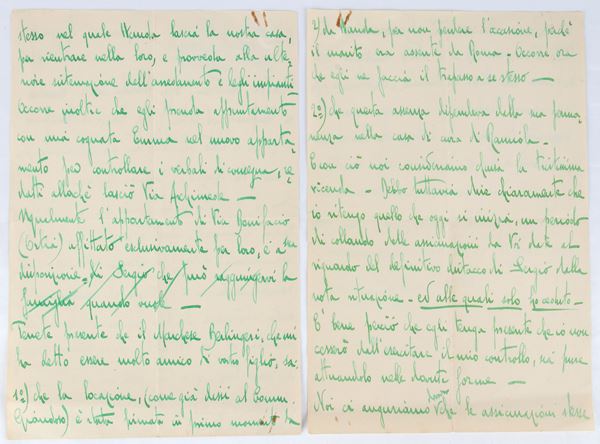 stesso nel quale Wanda lascia la nostra casa,
per rientrare nella loro, e provveda alla ulte,
riore sistemazione dell'arredamento e degli impianti
Occorre inoltre che egli prenda appuntamento
con mia cognata Emma nel nuovo apparta,
mento per controllare i verbali di consegna, re,
datti allorché lasciò Via Archimede —
Ugualmente l'appartamento di Via Bonifacio
(Ostia) affittato esclusivamente per loro, è a sua
disposizione = di Sergio che può raggiungervi la
famiglia quando vuole —
Tenete presente che il Marchese Berlingeri, che mi
ha detto essere molto amico di vostro figlio, sa:
1º) che la locazione, (come già dissi al Comm.
) è stata firmata in primo momento da
2) da Wanda, per non perdere l'occasione, perché
il marito era assente da Roma. Occorre ora
che egli ne faccia il trapasso a se stesso —
2º) che questa assenza dipendeva dalla sua perma,
nenza nella casa di cura di
E con ciò noi consideriamo chiusa la tristissima
vicenda — Debbo tuttavia dire chiaramente che
io ritengo quello che oggi si inizia, un periodo
di collaudo delle assicurazioni da Voi date al
riguardo del definitivo distacco di Sergio dalla
nota situazione — ed alle quali solo ho ceduto —
E' bene perciò che egli tenga presente che io non
cesserò dall'esercitare il mio controllo, sia pure
attuandolo nelle dovute forme —
Noi ci auguriamo che le assicurazioni stesse